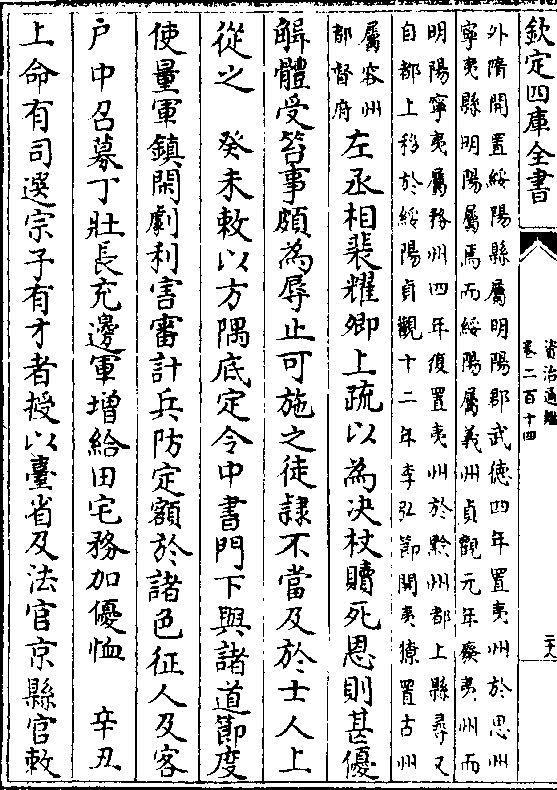 欽定四庫全書
資治通鑑
卷二百十四
外隋開置綏陽縣屬明陽郡武德四年置夷州於思州
寧夷縣明陽屬焉而綏陽屬義州貞觀元年廢夷州而
明陽寧夷屬務州四年復置夷州於黔州都上縣尋又
自都上移於綏陽貞觀十二年李弘節開夷獠置古州
屬容州
都督府
左丞相裴耀卿上疏以為决杖贖死恩則甚優
解體受笞事頗為辱止可施之徒隷不當及於士人上
從之 癸未敕以方隅底定令中書門下與諸道節度
使量軍鎮閑劇利害審計兵防定額於諸色征人及客
戶中召募丁壯長充邊軍增給田宅務加優恤 辛丑
上命有司選宗子有才者授以臺省及法官京縣官敕